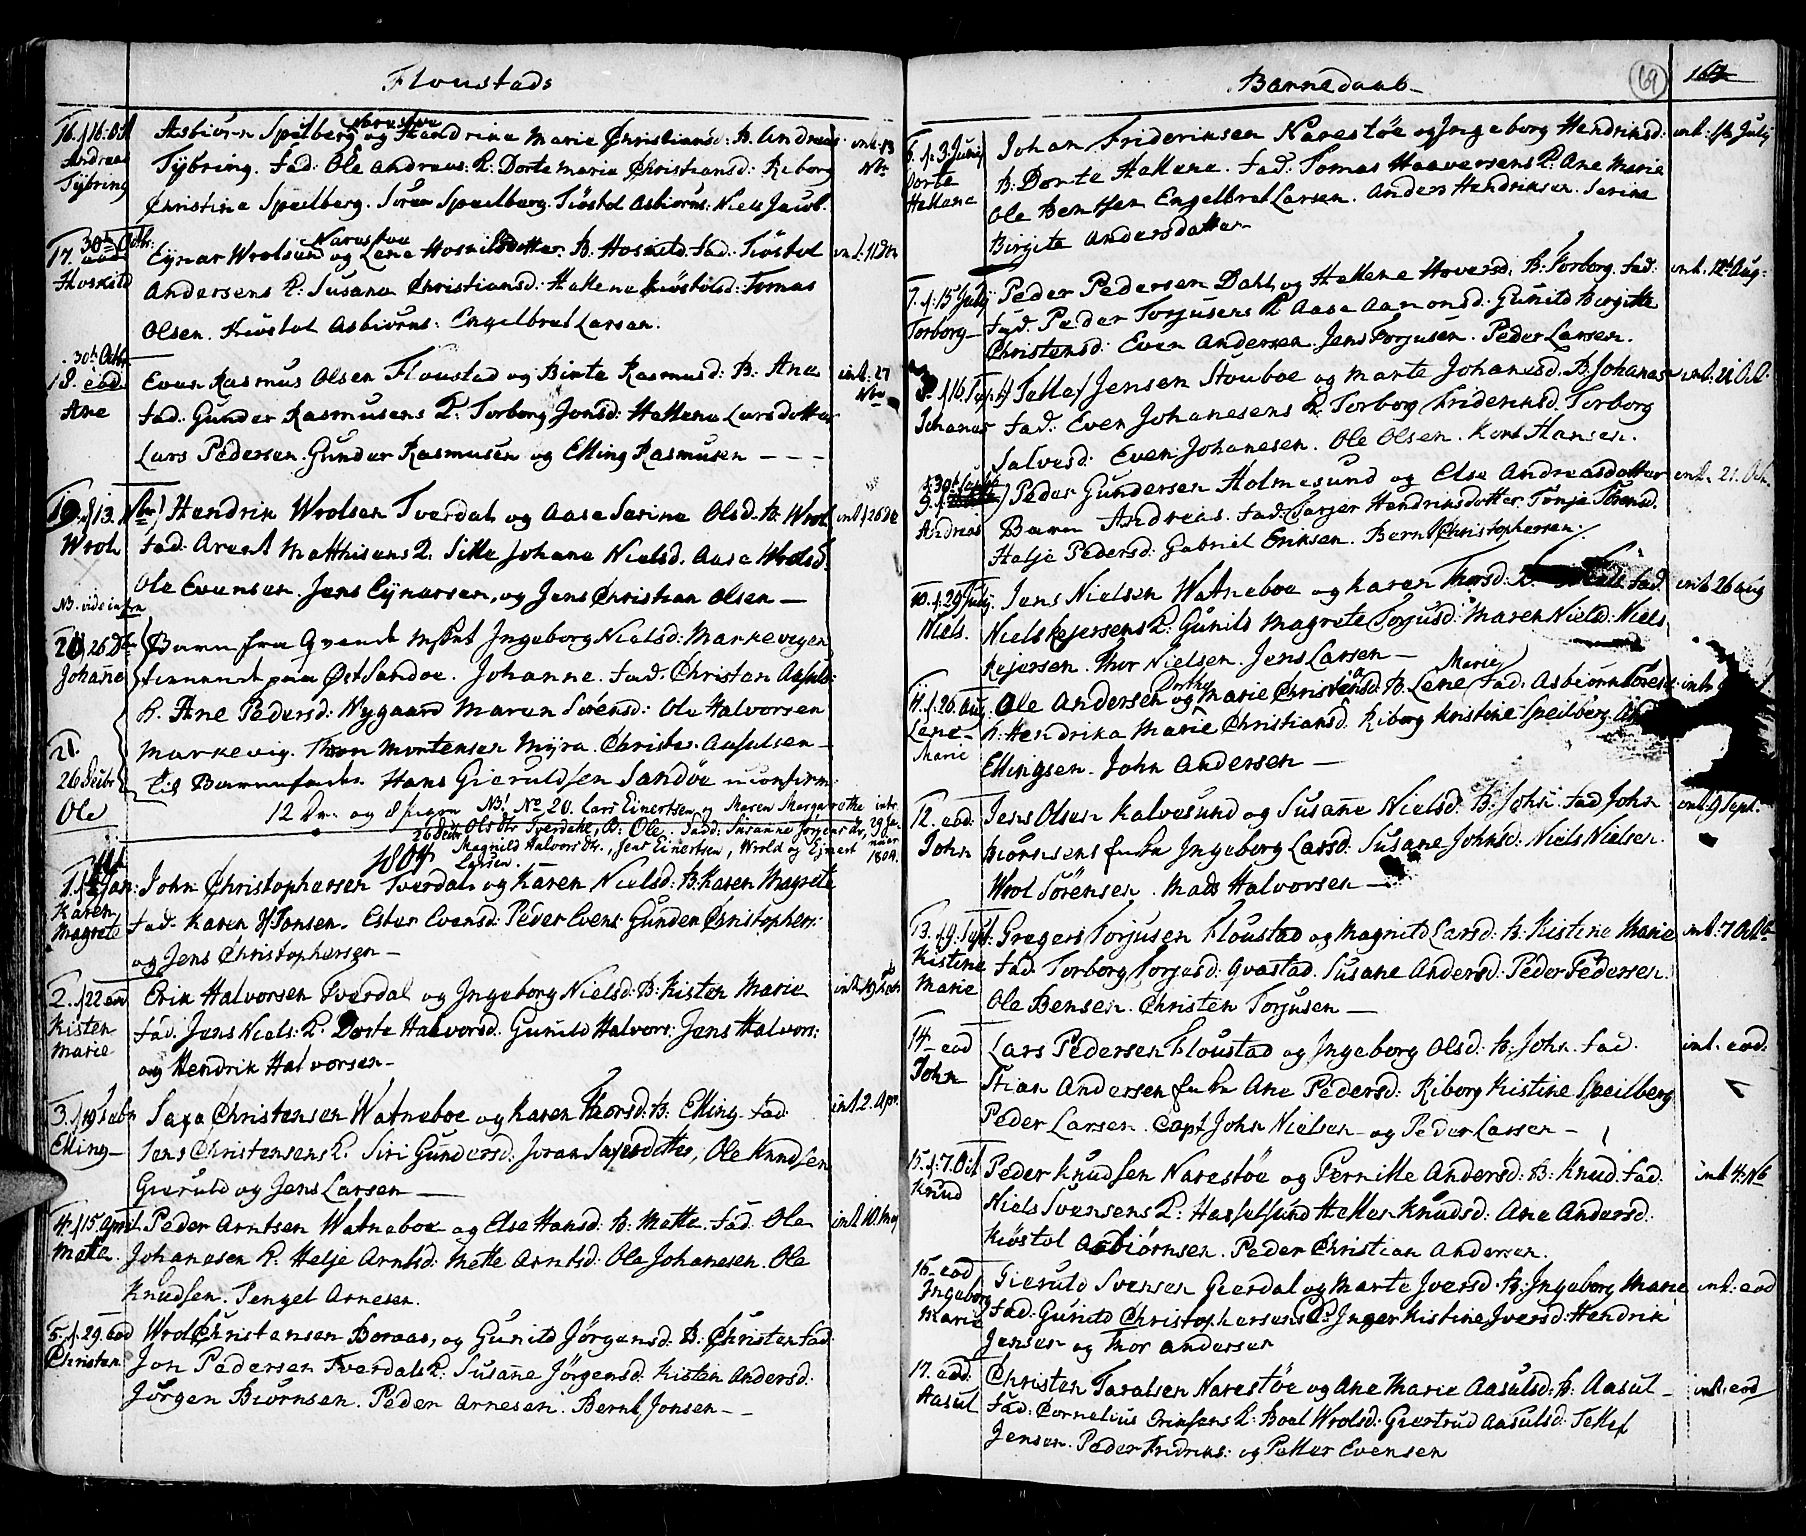 Floustads
16. f 16: Oct
Andreas
Tÿbring
Asbiörn Speilberg Narestøe og Handrine Marie Christiansd: B. Andreas
Tÿbring. Fad: Ole Andreas: K: Dorte Marie Christiansd: Riborg
Christine Speilberg. Sören Speilberg. Kiöstol Asbiörns: Niels Jacob.
int. 13
Nbr
17. 30te Octbr:
Hoskild
Eÿnar Wrolsen og Narestøe Lene Hoskildsdotter. B. Hoskild. Fad: Kiöstol
Andersens K: Susana Christiansd: Hellena Kiöstolsd: Tomas
Olsen. Kiöstol Asbiörns: Engelbret Larsen.
int. 11 Dec
30te Octbr
18. eod.
Ane
Even Rasmus Olsen Floustad og Birte Rasmusd: B. Ane
Fad: Gunder Rasmusens K: Torborg Jonsd: Hellena Larsdotter
Lars Pedersen. Gunder Rasmusen og Elling Rasmusen - - -
int. 27
Nbr
19. f 13. Nbr
Wrol
Hendrik Wrolsen Tverdal og Aase Sarine Olsd. B. Wrol
Fad. Arent Matthisens K. Sille Johane Nielsd. Aase Wrolsd.
Ole Evensen. Jens Eÿnersen, og Jens Christian Olsen —
int. f 26 De
NB. vide infra
20, 26 Dbr
Johañe
Barn fra Qvende Mskt Ingeborg Nielsd: Markevigen
tienende paa Øst Sandøe. Johanne. Fad. Christen Aasuls:
K. Ane Pedersd: Nygaard Maren Sörensd: Ole Halvorsen
Markevig. Thron Mortensen Mÿra. Christen Aasulsen —
til Barnefader Hans Gieruldsen Sandöe uconfirm:
21.
26 Decbr
Ole
NB! No 20. Lars Einertsen og Maren Margrethe
Olsdtr Tverdahl, B: Ole. Fadd: Susanne Jørgensdtr,
Magnild Halvorsdtr., Jens Einertsen, Wrold og Einert
Larsen.
intr.
29 Ja-
nuar
1804.
1804
1. f Jan:
Karen
Magrete
John Christophersen Tverdal og Karen Nielsd: B. Karen Magrete
Fad. Karen H Jonsen. Ester Evensd: Peder Evens: Gunder Christophers:
og Jens Christophersen —
2. f 22 eod
Kisten
Marie
Erik Halvorsen Tverdal og Ingeborg Nielsd: B: Kisten Marie
Fad. Jens Niels: K. Dorte Halvorsd. Gunuld Halvors: Jens Halvors:
og Hendrik Halvorsen —
int. 19 Feb
3. f 19 Febr
Elling —
Saxe Christensen Watneboe og Karen Thorsd: B. Elling. Fad
Jens Christensens K. Siri Gundersd. Joran Saxesdotter, Ole Knudsen
Gieruld og Jens Larsen —
int. 2. Apr.
4. f 15 April
Mette.
Peder Arntsen Watneboe og Else Hansd: B. Mette. Fad. Ole
Johanesen K: Helje Arntsd: Mette Arntsd: Ole Johanesen. Ole
Knudsen. Tengel Arnesen.
int. 10. Maj
5. f. 29. eod
Christen
Wrol Christensen Boraas, og Gunild Jörgensd: B: Christen Fad:
Jon Pedersen Tverdals K: Susañe Jörgensd: Kisten Andersd:
Jörgen Biörnsen. Peder Arnesen. Bernt Jonsen —
Barnedaab
69
6. f. 3. Junij
Dorte
Hellene
Johan Frideriksen Narestøe og Ingeborg Hendriksd:
B: Dorte Hellene. Fad: Tomas Haaversens K: Ane Marie
Ole Bentsen Engelbret Larsen. Anders Hendriksen. Sarine
Birgite Andersdatter
7. f. 15 Julij
Torborg —
Peder Pedersen Dahl og Hellene Hoversd. B: Torborg. Fad:
Fad. Peder Torjusens K. Aase Aamonsd: Gunild Birgitte
Christensd: Even Andersen. Jens Torjusen. Peder Larsen.
int. 12t Aug:
8. f 16. Sept
Johanes
Tellef Jensen Stouboe og Marte Johanesd. B. Johanes
Fad: Even Johanesens K. Torborg Frideriksd. Torborg
Salvesd: Even Johanesen. Ole Olsen. Kort Hansen.
int. 21. Oct.
9.
Andreas
Peder Gundersen Holmesund og Else Andreasdotter
Barn Andreas. Fad: Tarjer Hendriksdotter. Tönje Torensd.
Halje Pedersd: Gabriel Eriksen. Bernt Christophersen.
int. 21. Oct.
10. f. 29 Julij
Niels.
Jens Nielsen Watneboe og Karen Thorsd: B. Niels Fad.
Niels Kejersens K: Gunild Magrete Torjusd: Maren Nielsd: Niels
Kejersen. Thor Nielsen. Jens Larsen —
int. 26 aug
11. f. 26. Aug:
Lene —
Marie
Ole Andersen og Dorthe Marie Christensd. B. Lene Marie Fad: Asbiörn Torese
K. Hendrika Marie Christiansd. Riborg Kristine Speilberg.
Ellingsen. John Andersen —
int
12. eod.
John
Jens Olsen Kalvesund og Susañe Nielsd. B: John Fad John
Biörnsens K Ingeborg Larsd: Susane Johnsd: Niels Nielsen.
Wrol Sörensen. Mads Halvorsen —
int. 9 Sept.
13. f. 9. Sept:
Kistine
Marie
Gregers Torjusen Floustad og Magnild Larsd: B. Kistine Marie
Fad: Torborg Torjusd: Qvastad. Susane Andersd: Peder Pedersen.
Ole Bensen. Christen Torjusen —
int. 7 Octb
14. eod
John
Lars Pedersen Floustad og Ingeborg Olsd: B. John. Fad.
Stian Andersen K Ane Pedersd: Riborg Kistine Speilberg
Peder Larsen. Capt John Nielsen og Peder Larsen —
int. eod.
15. f. 7. Oct
Knud
Peder Knudsen Narestöe og Pernille Andersd: B: Knud. Fad.
Niels Svensens K: Hasselsund Helles Knudsd: Ane Andersd.
Kiöstol Asbiörnsen. Peder Christian Andersen.
int 4: Nb
16. eod
Ingeborg
Marie
Gieruld Svensen Gierdal og Marte Iversd: B: Ingeborg Marie
Fad: Gunild Christophersens K: Inger Kistine Iversd: Hendrik
Jensen og Thor Andersen
int: eod
17. eod.
Aasul
Christen Taralsen Narestöe og Ane Marie Aasulsd: B: Aasul —
Fad: Cornelius Eriksens K: Boel Wrolsd: Giertrud Aasulsd. Tellef
Jensen. Peder Fredriks: og Petter Evensen
int. eod